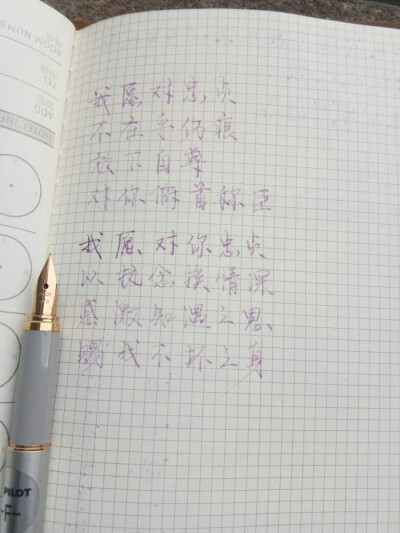 我愿对忠贞
不在乎伤痕
放下自尊
对你俯首称臣
我愿对你忠贞
以执念换情深
感激知遇之恩
赐我不坏之身
ROOM NUMB
TEL
ADD
HOTEL INF
PILOT
-F-